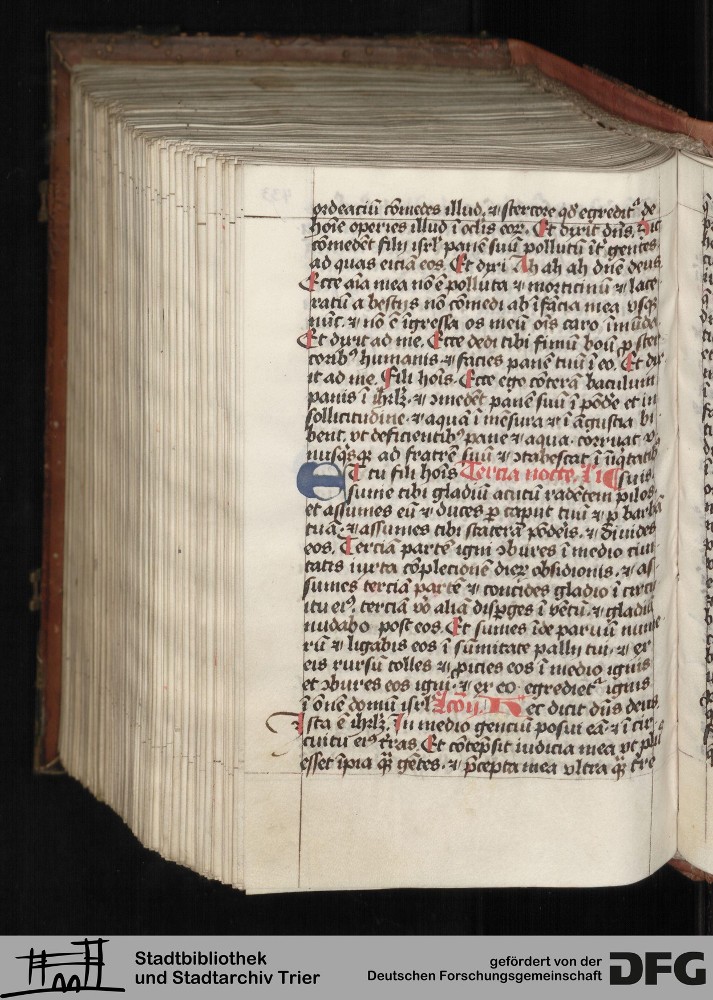 ordeaciū cōmedes illud. ⁊ stercore qd̄ egredit᷑ de
hoīe operies illud ī oclis eoꝝ. Et dixit dn̄s. Sic
cōmedēt filij isrl̄ panē suū pollutū īt᷑ gentes
ad quas eiciā eos. Et dixi Ah ah ah dn̄e deus
Ecce aīa mea nō ē polluta ⁊ morticinū ⁊ lace
ratū a bestijs nō cōmedi ab īfācia mea vsqꝫ
nūc. ⁊ nō ē īgressa os meū oīs caro īmūda
Et dixit ad me. Ecce dedi tibi fimū boū ꝓ ster
coribꝰ humanis ⁊ facies panē tuū ī eo. Et dix
it ad me. Fili hoīs. Ecce ego cōterā baculum
panis ī ihrlꝫ. ⁊ ꝯmedēt panē suū ī pōde et in
sollicitudine. ⁊ aquā ī mēsura ⁊ ī āgustia bi
bent. vt deficientibꝰ pane ⁊ aqua. corruat v
nusqsqꝫ ad fratrē suū ⁊ ꝯtabescāt ī iīqtatibꝰ
ET tu fili hoīs Tercia nocte. Lic suis.
sume tibi gladiū acutū radētem pilos.
et assumes eū ⁊ duces ꝑ caput tuū ⁊ ꝑ barbā
tuā. ⁊ assumes tibi staterā pōderis. ⁊ diuides
eos. Terciā partē igni ꝯbures ī medio ciui
tatis iuxta cōpletionē dierꝝ obsidionis. ⁊ as
sumes terciā partē ⁊ concides gladio ī circu
itu eiꝰ. terciā vō aliā disꝑges ī vētū. ⁊ gladiū
nudabo post eos. Et sumes īde paruū nume
rū ⁊ ligabis eos ī sūmitate pallij tui. ⁊ ex
eis rursū tolles ⁊ ꝓicies eos ī medio ignis
et ꝯbures eos igni. ⁊ ex eo egrediet᷑ ignis
ī oēm domū isrl̄ Rec dicit dn̄s deus.
Ista ē ihrlꝫ. In medio genciū posui eā ⁊ ī cir
cuitu eiꝰ t̄ras. Et cōtēpsit iudicia mea vt plꝰ
esset īpia qͣꝫ gētes. ⁊ p̄cepta mea vltra qͣꝫ t̄re
Stadtbibliothek
und Stadtarchiv Trier
gefördert von der
Deutschen Forschungsgemeinschaft
DFG